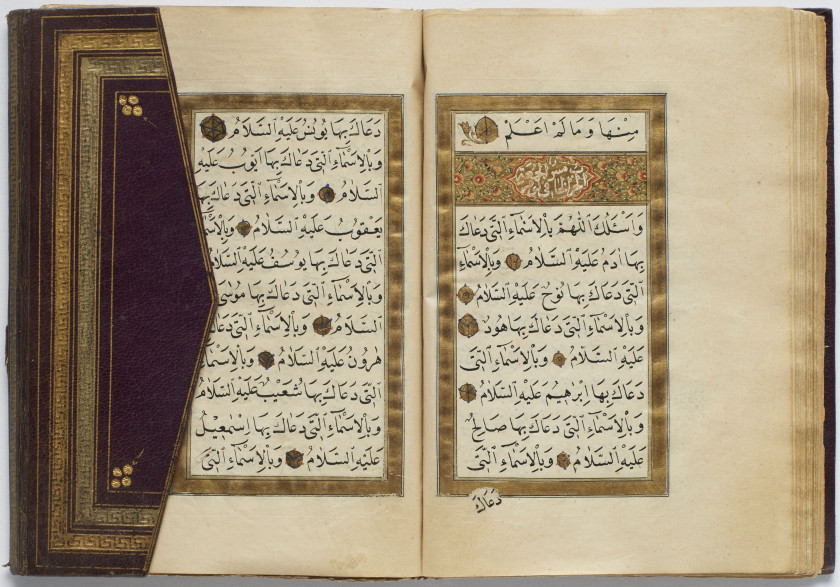 مِنْهَا وَمَا لَمْ اَعْلَمْ
وَاَسْئَلُكَ اَللّٰهُمَّ بِالْاَسْمَاءِ الَّتِى دَعَاكَ
بِهَا اٰدَمُ عَلَيْهِ السَّلَامُ وَبِالْاَسْمَاءِ
الَّتِى دَعَاكَ بِهَا نُوحٌ عَلَيْهِ السَّلَامُ
وَبِالْاَسْمَاءِ الَّتِى دَعَاكَ بِهَا هُودٌ
عَلَيْهِ السَّلَامُ وَبِالْاَسْمَاءِ الَّتِى
دَعَاكَ بِهَا اِبْرٰهِيمُ عَلَيْهِ السَّلَامُ
وَبِالْاَسْمَاءِ الَّتِى دَعَاكَ بِهَا صَالِحٌ
عَلَيْهِ السَّلَامُ وَبِالْاَسْمَاءِ الَّتِى
دَعَاكَ
دَعَاكَ بِهَا يُونُسُ عَلَيْهِ السَّلَامُ
وَبِالْاَسْمَاءِ الَّتِى دَعَاكَ بِهَا اَيُّوبُ عَلَيْهِ
السَّلَامُ وَبِالْاَسْمَاءِ الَّتِى دَعَاكَ بِهَا
يَعْقُوبُ عَلَيْهِ السَّلَامُ وَبِالْاَسْمَاءِ
الَّتِى دَعَاكَ بِهَا يُوسُفُ عَلَيْهِ السَّلَامُ
وَبِالْاَسْمَاءِ الَّتِى دَعَاكَ بِهَا مُوسٰى
السَّلَامُ وَبِالْاَسْمَاءِ الَّتِى دَعَاكَ
هٰرُونُ عَلَيْهِ السَّلَامُ وَبِالْاَسْمَاءِ
الَّتِى دَعَاكَ بِهَا شُعَيْبٌ عَلَيْهِ السَّلَامُ
وَبِالْاَسْمَاءِ الَّتِى دَعَاكَ بِهَا اِسْمٰعِيلُ
عَلَيْهِ السَّلَامُ وَبِالْاَسْمَاءِ الَّتِى